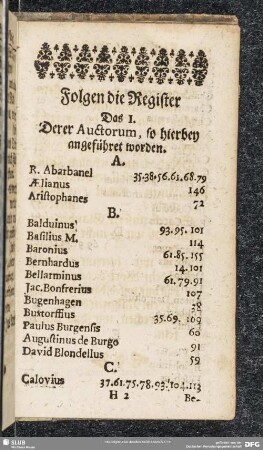 Folgen die Register
Das I.
Derer Auctorum, so hierbey
angeführet worden.
A.
R. Abarbanel 35.38.56.61.68.79
Ælianus 146
Aristophanes 72
B.
Balduinus 93. 95. 101
Basilius M. 114
Baronius 61.85. 155
Bernhardus 14. 101
Bellarminus 61.79.91
Jac. Bonfrerius 107
Bugenhagen 38
Buxtorffius 35.69. 109
Paulus Burgensis 60
Augustinus de Burgo 91
David Blondellus 59
C.
Calovius 37.61.75.78.93.104.113
H 2 Be-
SLUB
DFG